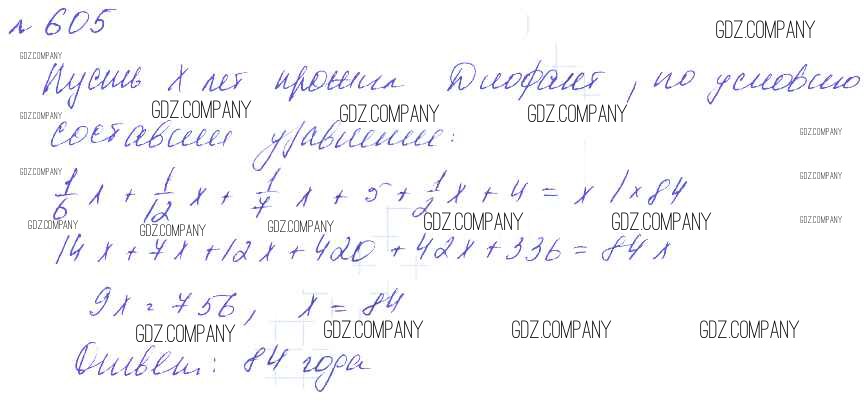 № 605
GDZ.COMPANY
GDZ.COMPANY
Пусть x лет прожил Диофант, по условию
GDZ.COMPANY GDZ.COMPANY GDZ.COMPANY GDZ.COMPANY
составим уравнение:
GDZ.COMPANY
GDZ.COMPANY GDZ.COMPANY
1/6 x + 1/12 x + 1/7 x + 5 + 1/2 x + 4 = x | × 84
GDZ.COMPANY GDZ.COMPANY GDZ.COMPANY GDZ.COMPANY GDZ.COMPANY GDZ.COMPANY
14x + 7x + 12x + 420 + 42x + 336 = 84x
9x = 756, x = 84
GDZ.COMPANY GDZ.COMPANY GDZ.COMPANY GDZ.COMPANY
Ответ: 84 года